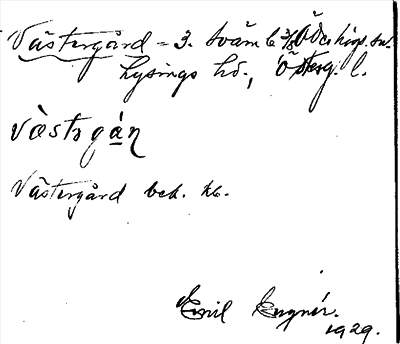 Västergård = 3. tväm 6 3/8 Ödeshögs sn.
Lysings hd., Österg. l.
västrgán
Västergård bek. kl.
Emil Engnér.
1929.